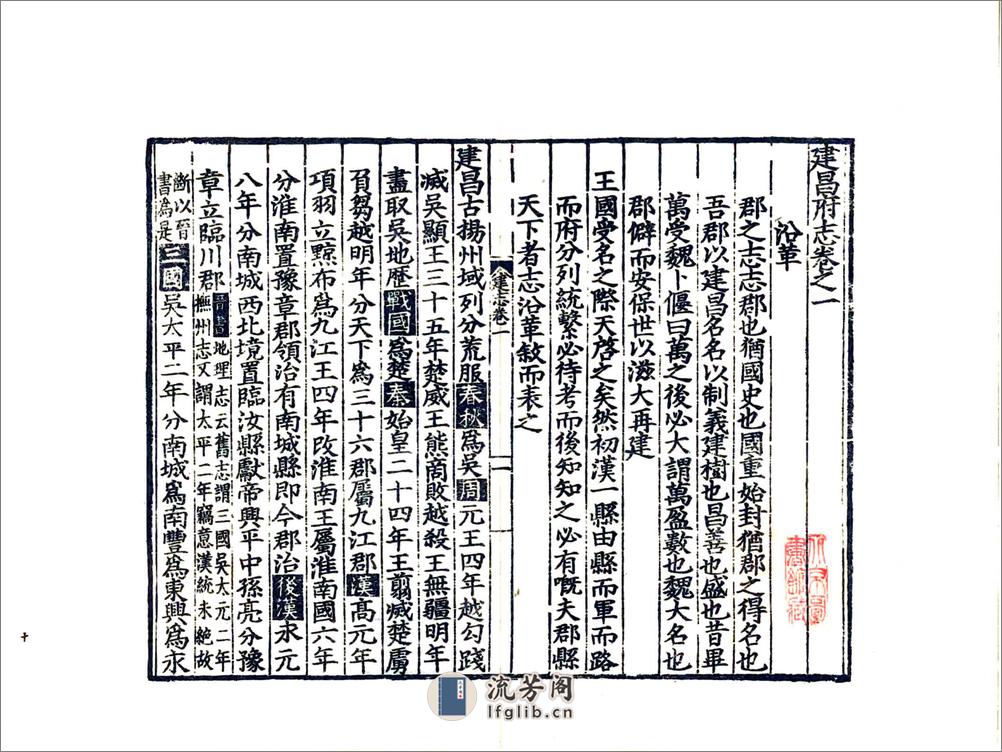 建昌府志卷之一
沿革
郡之志志郡也猶國史也國重始封猶郡之得名也
吾郡以建昌名名以制義建樹也昌善也盛也昔畢
萬受魏卜偃曰萬之後必大謂萬盈數也魏大名也
郡僻而安保世以滋大再建
王國受名之際天啓之矣然初漢一縣由縣而軍而路
而府分列統繫必待考而後知知之必有旣夫郡縣
天下者志沿革敘而表之
建志卷一
建昌古揚州域列分荒服春秋爲吳周元王四年越勾踐
滅吳顯王三十五年楚威王熊商敗越殺王無疆明年
盡取吳地歷戰國爲楚秦始皇二十四年王翦滅楚虜
負芻越明年分天下爲三十六郡屬九江郡漢高元年
項羽立黥布爲九江王四年改淮南王屬淮南國六年
分淮南置豫章郡領治有南城縣即今郡治後漢永元
八年分南城西北境置臨汝縣獻帝興平中孫亮分豫
章立臨川郡晉書地理志云舊志謂三國吳太元二年
撫州志又謂太平二年竊意漢統未絶故
斷以晉
書爲是三國吳太平二年分南城爲南豐爲東興爲永
十
流芳阁
lfglib.cn